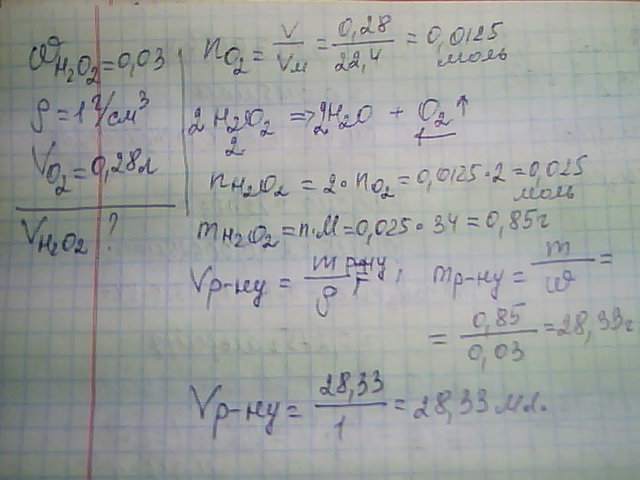 ω H₂O₂ = 0,03
ρ = 1 г/см³
V O₂ = 0,28л
V H₂O₂ ?
n O₂ = V/Vм = 0,28/22,4 = 0,0125 моль
2H₂O₂ => 2H₂O + O₂↑
2 1
n H₂O₂ = 2·n O₂ = 0,0125·2 = 0,025 моль
m H₂O₂ = n·M = 0,025·34 = 0,85г
Vр-ну = m р-ну/ρ ; mр-ну = m/ω =
= 0,85/0,03 = 28,33г
Vр-ну = 28,33/1 = 28,33 мл.